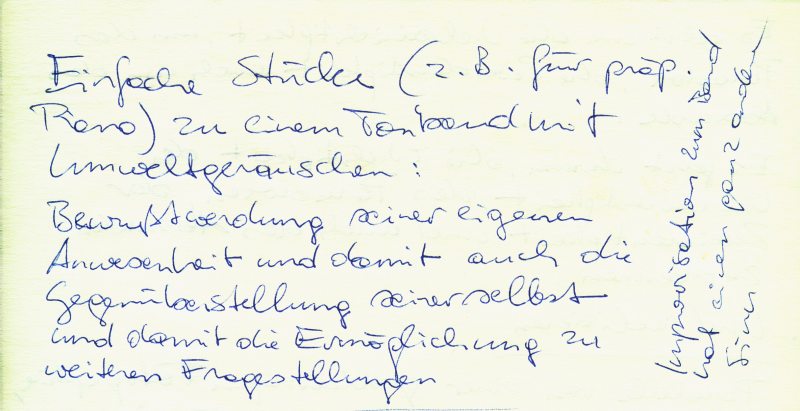 Einfache Stücke (z.B. für präp.
Piano) zu einem Tonband mit
Umweltgeräuschen:
Bewußtwerdung seiner eigenen
Anwesenheit und damit auch die
Gegenüberstellung seiner selbst
und damit die Ermöglichung zu
weiteren Fragestellungen
Improvisation zum Band
hat einen ganz anderen
Sinn